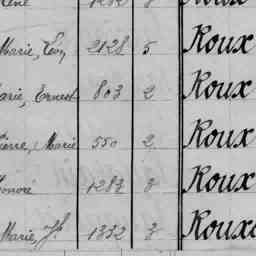 Marie, Léon 2128 5 Roux
Marie, Ernest 803 2 Roux
Pierre, Marie 550 2 Roux
Honoré 1283 3 Roux
Marie, Jh 1332 3 Roux